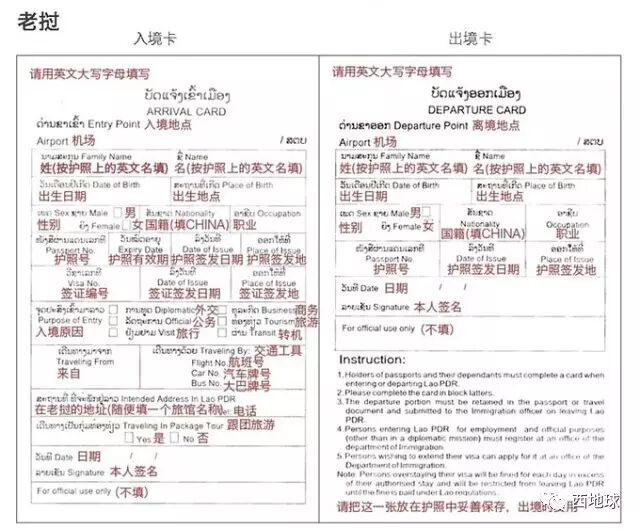 老挝
入境卡
请用英文大写字母填写
ບັດແຈ້ງເຂົ້າເມືອງ
ARRIVAL CARD
ດ່ານຂາເຂົ້າ Entry Point 入境地点
Airport 机场 / ສຕບ
ນາມສະກຸນ Family Name ຊື່ Name
姓(按护照上的英文名填) 名(按护照上的英文名填)
ວັນເດືອນປີເກີດ Date of Birth ສະຖານທີ່ເກີດ Place of Birth
出生日期 出生地点
ເພດ Sex ຊາຍ Male 男 ສັນຊາດ Nationality ອາຊີບ Occupation
性别 ຍິງ Female 女 国籍(填CHINA) 职业
ໜັງສືຜ່ານແດນເລກທີ ວັນໝົດອາຍຸ ລົງວັນທີ ອອກໃຫ້ທີ່
Passport No. Expiry Date Date of Issue Place of Issue
护照号 护照有效期 护照签发日期 护照签发地
ວີຊາເລກທີ ລົງວັນທີ ອອກໃຫ້ທີ່
Visa No. Date of Issue Place of Issue
签证编号 签证签发日期 签证签发地
ຈຸດປະສົງເຂົ້າມາລາວ ການທູດ Diplomatic 外交 ທຸລະກິດ Business 商务
Purpose of Entry ລັດຖະການ Official 公务 ທ່ອງທ່ຽວ Tourism 旅游
入境原因 ຢ້ຽມຢາມ Visit 旅行 ຜ່ານ Transit 转机
ເດີນທາງມາຈາກ ເດີນທາງດ້ວຍ Traveling By: 交通工具
Traveling From Flight No. 航班号
来自 Car No. 汽车牌号
Bus No. 大巴牌号
ສະຖານທີ່ ທີ່ຈະພັກຢູ່ລາວ Intended Address In Lao PDR
在老挝的地址(随便填一个旅馆名称) 电话
ເດີນທາງເປັນກຸ່ມທ່ອງທ່ຽວ Traveling In Package Tour 跟团旅游
Yes 是 No 否
ວັນທີ Date 日期 / /
ລາຍເຊັນ Signature 本人签名
For official use only (不填)
出境卡
请用英文大写字母填写
ບັດແຈ້ງອອກເມືອງ
DEPARTURE CARD
ດ່ານຂາອອກ Departure Point 离境地点
Airport 机场 / ສຕບ
ນາມສະກຸນ Family Name ຊື່ Name
姓(按护照上的英文名填) 名(按护照上的英文名填)
ວັນເດືອນປີເກີດ Date of Birth ສະຖານທີ່ເກີດ Place of Birth
出生日期 出生地点
ເພດ Sex ຊາຍ Male 男 ສັນຊາດ ອາຊີບ
性别 ຍິງ Female 女 Nationality Occupation
国籍(填CHINA) 职业
ໜັງສືຜ່ານແດນເລກທີ ລົງວັນທີ ອອກໃຫ້ທີ່
Passport No. Date of Issue Place of Issue
护照号 护照签发日期 护照签发地
ວັນທີ Date 日期 / /
ລາຍເຊັນ Signature 本人签名
For official use only (不填)
Instruction:
1.Holders of passports and their dependants must complete a card when
entering or departing Lao PDR.
2.Please complete the card in block letters.
3.The departure portion must be retained in the passport or travel
document and submitted to the Immigration officer on leaving Lao
PDR.
4.Persons entering Lao PDR for employment and official purposes
(other than in a diplomatic mission) must register at an office of the
department of Immigration.
5.Persons wishing to extend their visa can apply for it at an office of the
Department of Immigration.
Note: Persons overstaying their visa will be fined for each day in excess
of their authorised stay and will be restricted from leaving Lao PDR
until the fine is paid under Lao regulations.
请把这一张放在护照中妥善保存，出境时使用
西地球